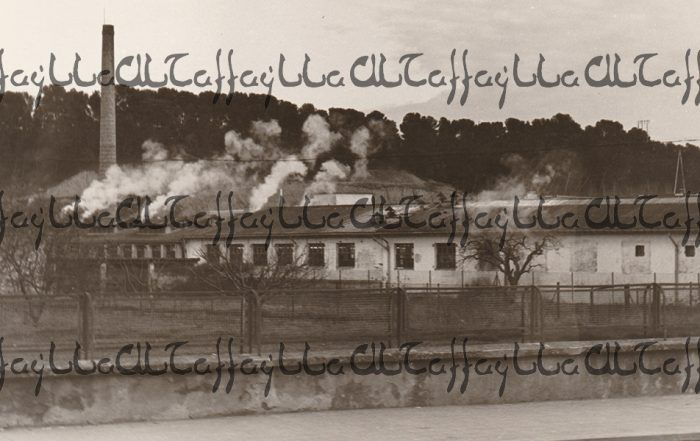 ffaylla alTaffaylla alTaffaylla alTaffaylla
ffaylla alTaffaylla alTaffaylla alTaffaylla
ffaylla alTaffaylla alTaffaylla alTaffaylla